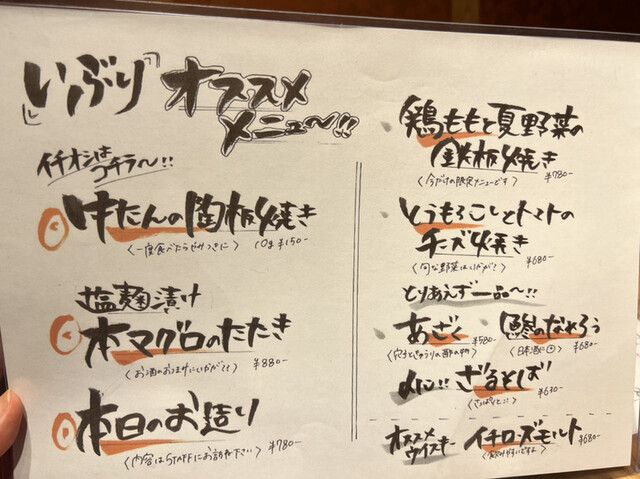 「いぶり」オススメ
メニュ〜!!
イチオシは
コチラ〜!!
牛たんの陶板焼き
〈一度食べたらやみつきに〉 10g ¥150-
塩麹漬け
本マグロのたたき
〈お酒のおつまみにいかが!!〉 ¥880-
本日のお造り
〈内容はSTAFFにお訪ね下さい〉 ¥780-
鶏ももと夏野菜の
鉄板焼き
〈今だけの限定メニューです〉 ¥780-
とうもろこしとトマトの
チーズ焼き
〈旬な野菜はいかが?〉 ¥680-
とりあえず一品〜!!
あざく ¥580-
〈穴子ときゅうりの酢の物〉
鯵のなめろう
〈日本酒に◎〉 ¥680-
〆に!! ざるそば
〈さっぱりと!!〉 ¥630-
オススメ
ウイスキー イチローズモルト ¥680-
〈飲みやすいですよ〉